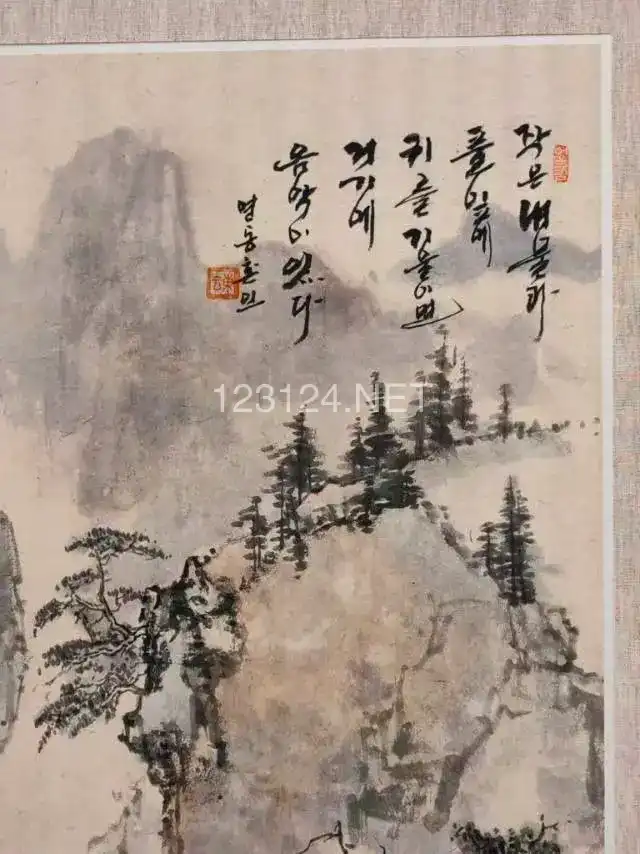 작은 냇물과
풀잎에
귀를 기울이면
거기에
음악이 있다
123124.NET